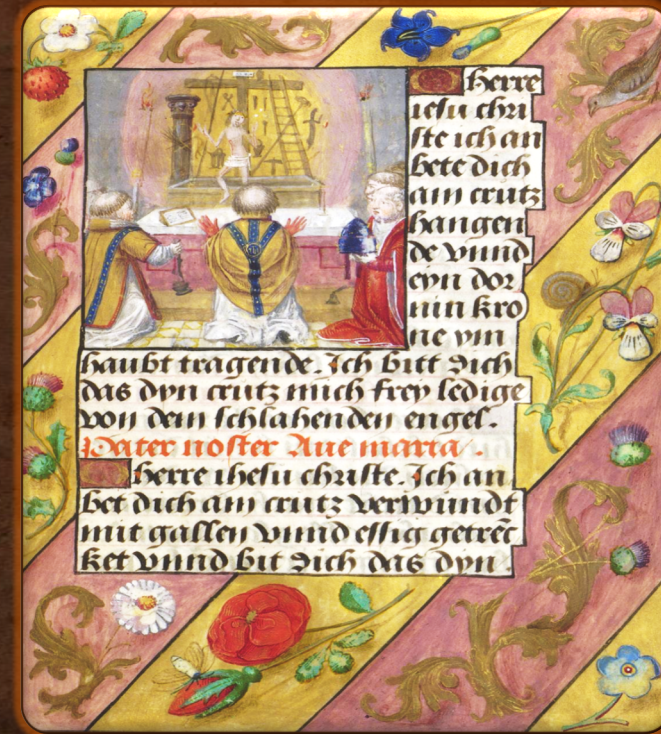 O Herre
iesu chri
ste ich an
bete dich
am crutz
hangen
de vnnd
eyn dor
nin kro
ne vm
haubt tragende. Ich bitt dich
das dyn crutz mich frey ledige
von dem schlahenden engel.
Pater noster Aue maria.
O herre ihesu christe. Ich an
bet dich am crutz verwundt
mit gallen vnnd essig getrēc
ket vnnd bit dich das dyn